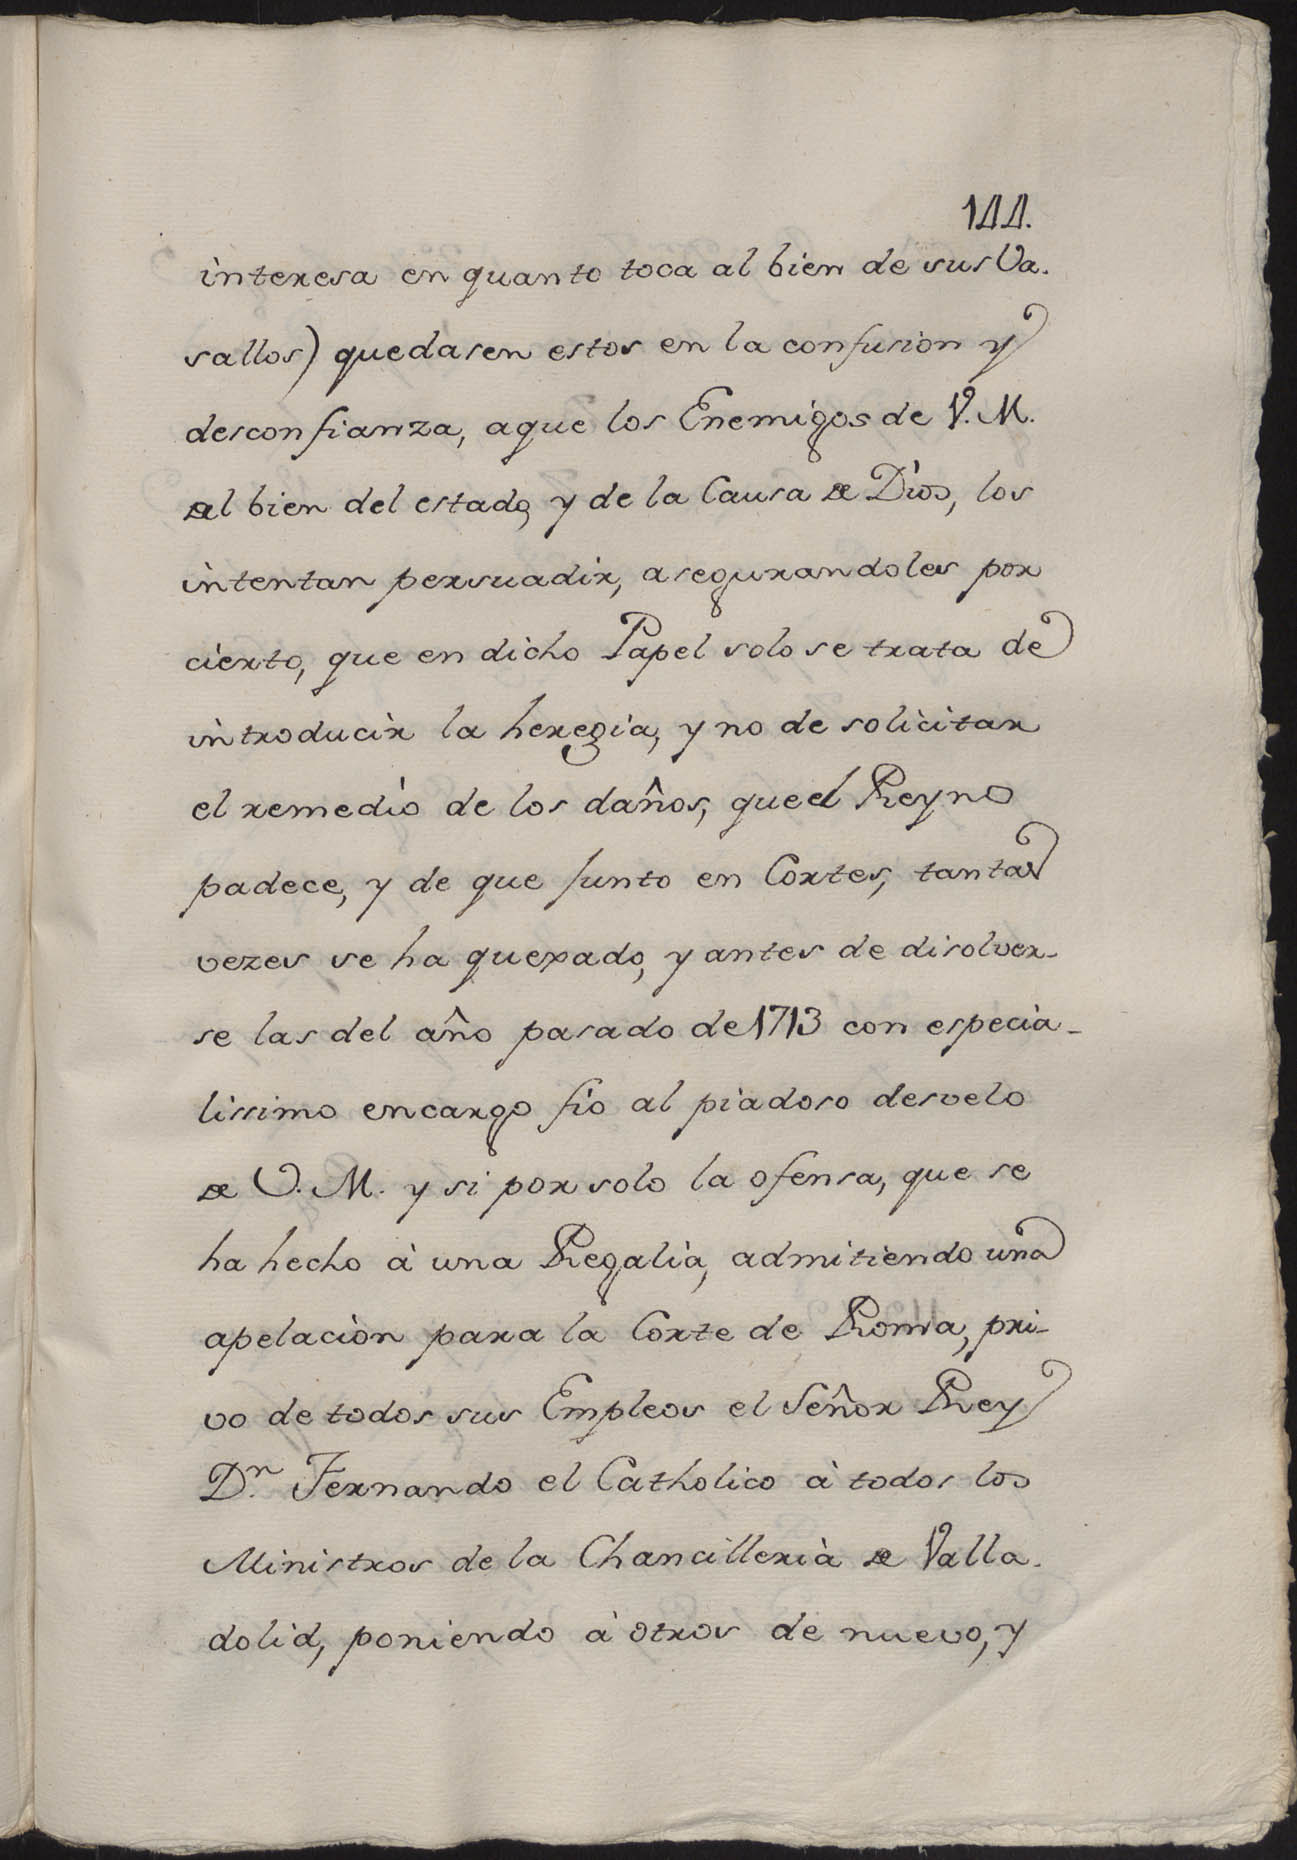 144.
interesa en quanto toca al bien de sus Va-
sallos) quedasen estos en la confusion y
desconfianza, aque los Enemigos de V. M.
del bien del estado, y de la Causa de Dios, los
intentan persuadir, asegurandoles por
cierto, que en dicho Papel solo se trata de
introducir la heregia, y no de solicitar
el remedio de los daños, que el Reyno
padece, y de que junto en Cortes, tantas
vezes se ha quexado, y antes de disolver-
se las del año pasado de 1713 con especia-
lissimo encargo fio al piadoso desvelo
de V. M. y si por solo la ofensa, que se
ha hecho à una Regalia, admitiendo una
apelacion para la Corte de Roma, pri-
vo de todos sus Empleos el Señor Rey
Dn. Fernando el Catholico à todos los
Ministros de la Chancilleria de Valla-
dolid, poniendo à otros de nuevo, y